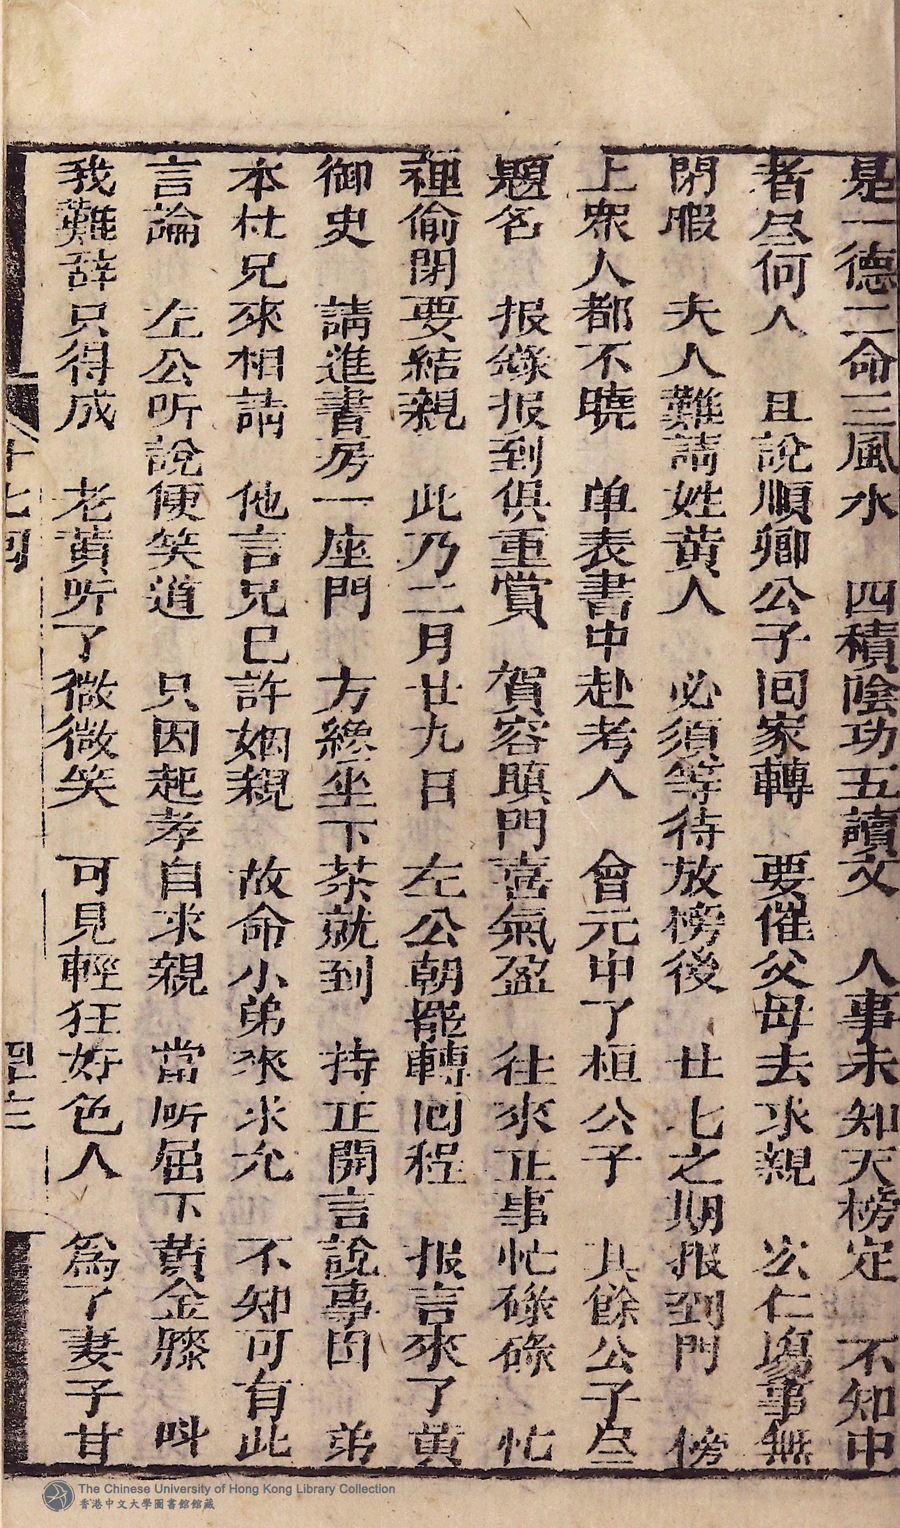 是一德二命三風水　四積陰功五讀父　人事未知天榜定　不知中
者尽何人　且說順卿公子囬家轉　要催父母去求親　次仁塲事無
閉暇　夫人難請姓黄人　必須等待放榜後　廿七之期报到門　傍
上衆人都不曉　单表書中赴考人　會元中了桓公子　其餘公子尽
題名　报錄报到俱重賞　賀容瞋門喜氣盈　往來正事忙碌碌　忙
裡偷閉要結親　此乃二月廿九日　左公朝罷轉囬程　报言來了黄
御史　請進書房一座門　方纔坐下茶就到　持正開言說事因　弟
本杜兄來相請　他言兄已許姻親　故命小弟來求允　不知可有此
言論　左公听說便笑道　只因起孝自求親　當听屈下黄金膝　呌
我難辞只得成　老黄听了微微笑　可見輕狂好色人　為了妻子甘
十七囬
The Chinese University of Hong Kong Library Collection
香港中文大學圖書館館藏